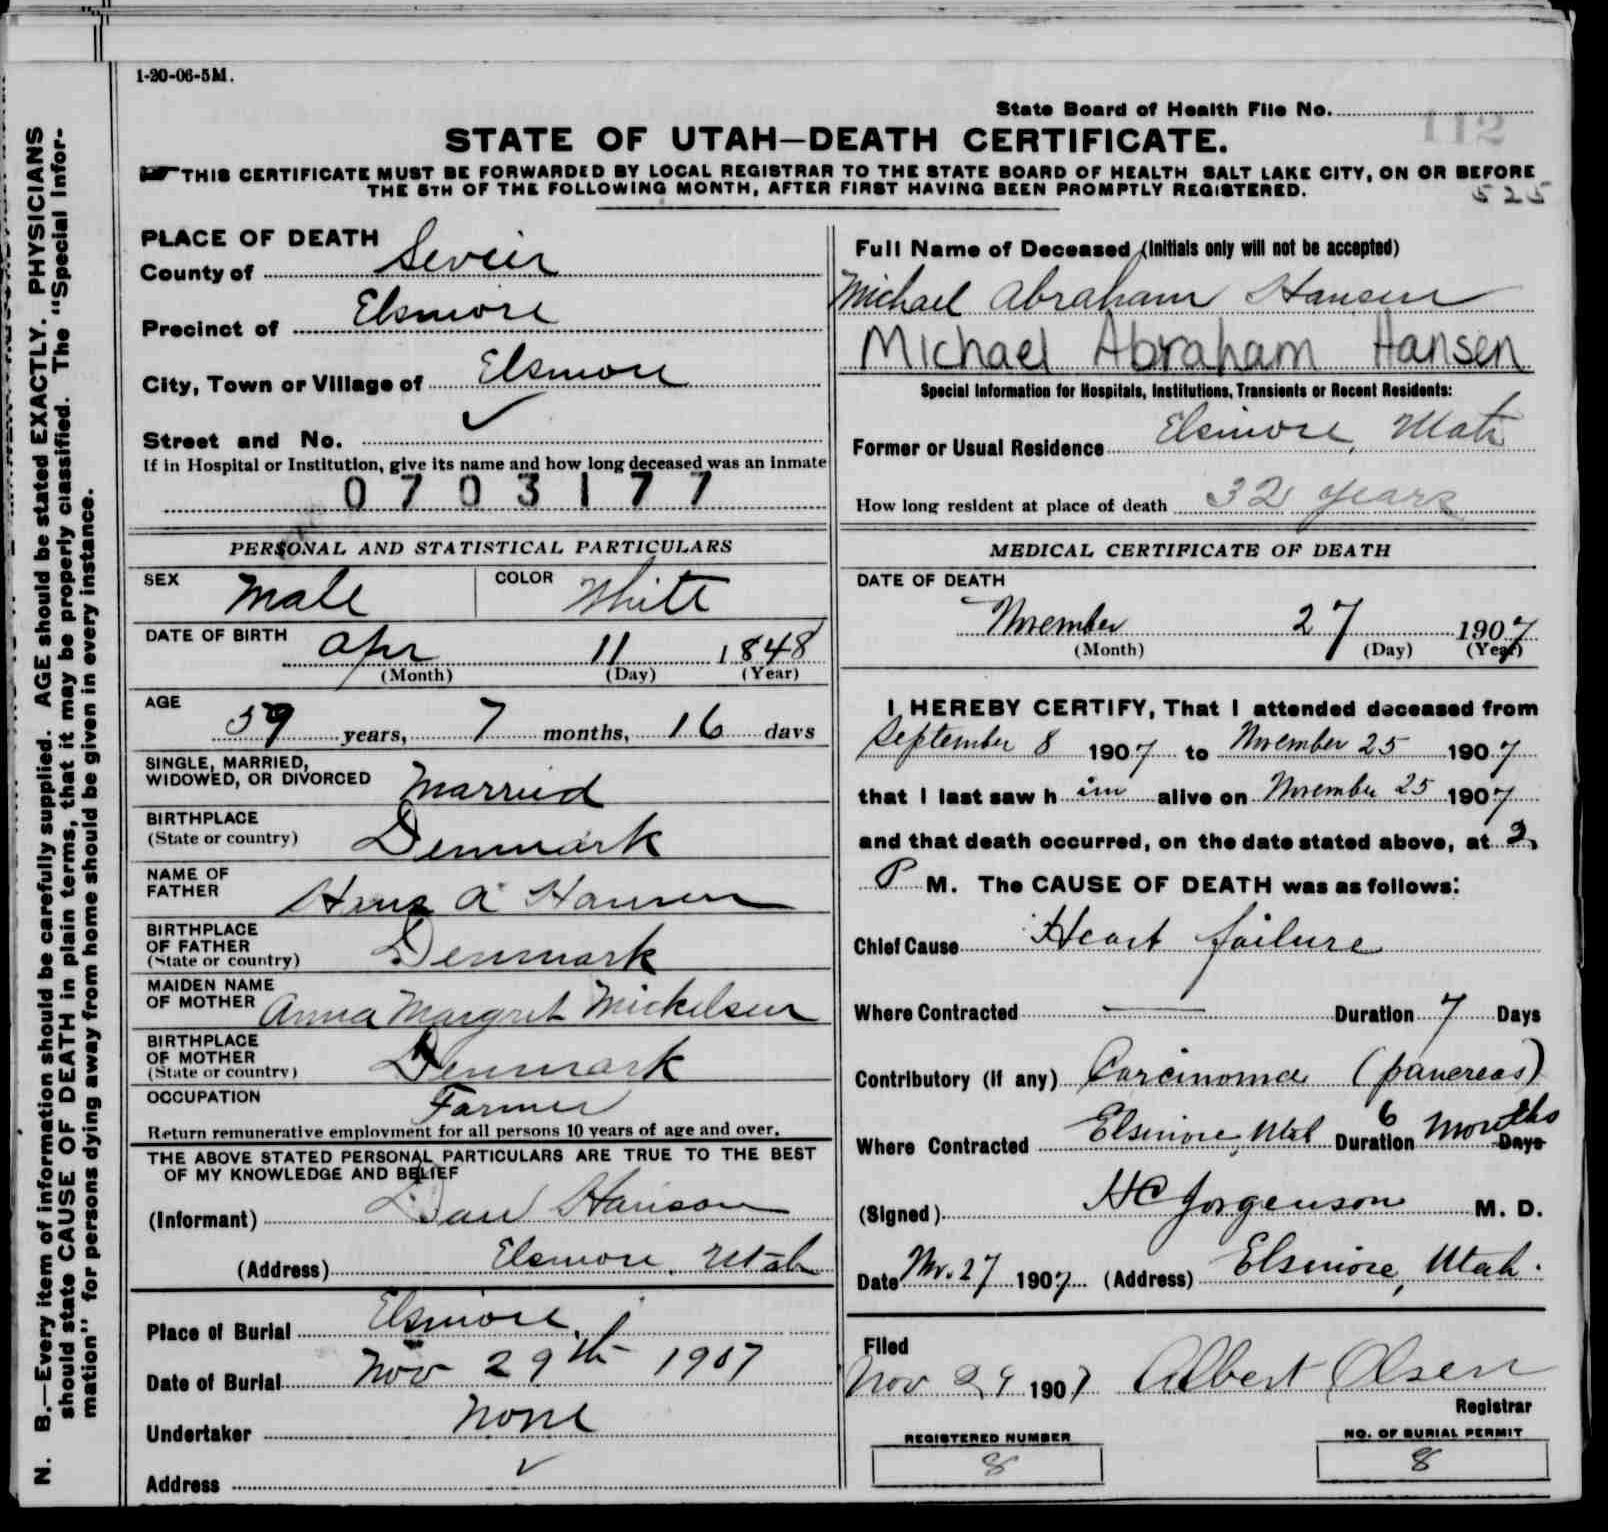 1-20-06-5M.
State Board of Health File No.
112
STATE OF UTAH—DEATH CERTIFICATE.
THIS CERTIFICATE MUST BE FORWARDED BY LOCAL REGISTRAR TO THE STATE BOARD OF HEALTH SALT LAKE CITY, ON OR BEFORE
THE 5TH OF THE FOLLOWING MONTH, AFTER FIRST HAVING BEEN PROMPTLY REGISTERED.
525
N. B.—Every item of information should be carefully supplied. AGE should be stated EXACTLY. PHYSICIANS
should state CAUSE OF DEATH in plain terms, that it may be properly classified. The "Special Infor-
mation" for persons dying away from home should be given in every instance.
PLACE OF DEATH
County of Sevier
Precinct of Elsinore
City, Town or Village of Elsinore
✓
Street and No.
If in Hospital or Institution, give its name and how long deceased was an inmate
0703177
PERSONAL AND STATISTICAL PARTICULARS
SEX Male COLOR White
DATE OF BIRTH Apr 11 1848
(Month) (Day) (Year)
AGE
59 years, 7 months, 16 days
SINGLE, MARRIED,
WIDOWED, OR DIVORCED Married
BIRTHPLACE
(State or country) Denmark
NAME OF
FATHER Hans A Hansen
BIRTHPLACE
OF FATHER
(State or country) Denmark
MAIDEN NAME
OF MOTHER Anna Margret Mickelsen
BIRTHPLACE
OF MOTHER
(State or country) Denmark
OCCUPATION Farmer
Return remunerative employment for all persons 10 years of age and over.
THE ABOVE STATED PERSONAL PARTICULARS ARE TRUE TO THE BEST
OF MY KNOWLEDGE AND BELIEF
(Informant) Dan Hanson
(Address) Elsinore, Utah
Place of Burial Elsinore,
Date of Burial Nov 29th 1907
Undertaker None
Address ✓
Full Name of Deceased (Initials only will not be accepted)
Michael Abraham Hansen
Michael Abraham Hansen
Special Information for Hospitals, Institutions, Transients or Recent Residents:
Former or Usual Residence Elsinore, Utah
How long resident at place of death 32 years
MEDICAL CERTIFICATE OF DEATH
DATE OF DEATH
November 27 1907
(Month) (Day) (Year)
I HEREBY CERTIFY, That I attended deceased from
September 8 1907 to November 25 1907
that I last saw h im alive on November 25 1907
and that death occurred, on the date stated above, at 2
P M. The CAUSE OF DEATH was as follows:
Chief Cause Heart failure
Where Contracted — Duration 7 Days
Contributory (if any) Carcinoma (pancreas)
Where Contracted Elsinore, Utah Duration 6 Months Days
(Signed) HC Jorgenson M. D.
Date Nov. 27 1907 (Address) Elsinore, Utah.
Filed
Nov 29 1907 Albert Olsen
Registrar
REGISTERED NUMBER
8
NO. OF BURIAL PERMIT
8